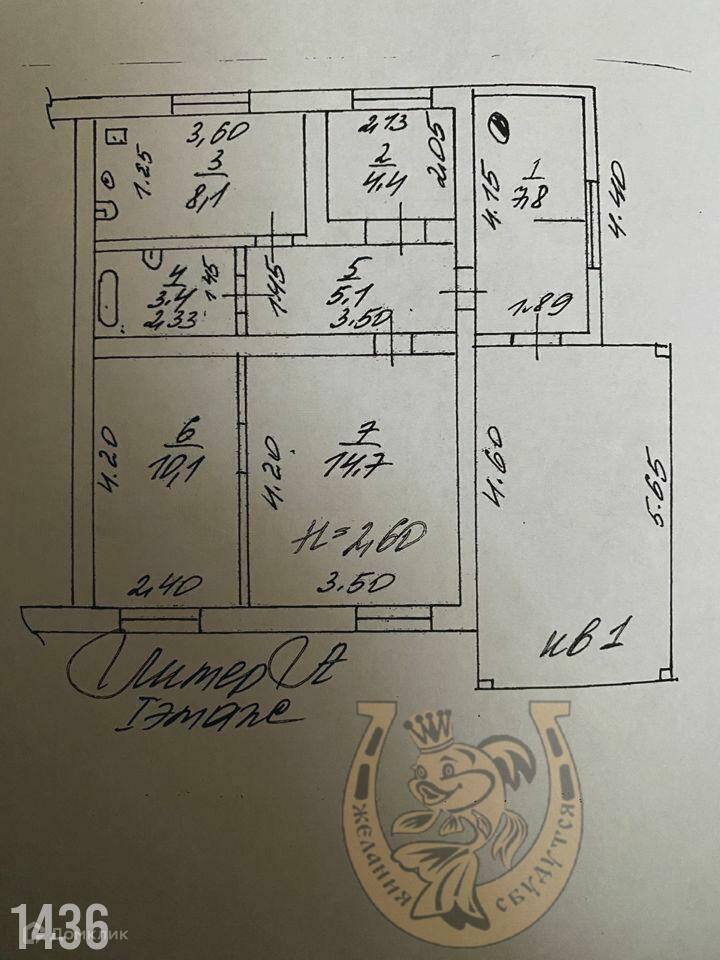 3,60
3
8,1
1.25
2,13
2
4.4
2,05
1
7,8
4.15
4.40
1.89
4
3.4
1.45
2,33
1.45
5
5.1
3.50
6
10,1
4.20
2.40
7
14,7
4.20
H=2,60
3.50
4.60
5.65
кв 1
Литер А
I этаж
ЖЕЛАНИЯ СБУДУТСЯ
1436
Домклик